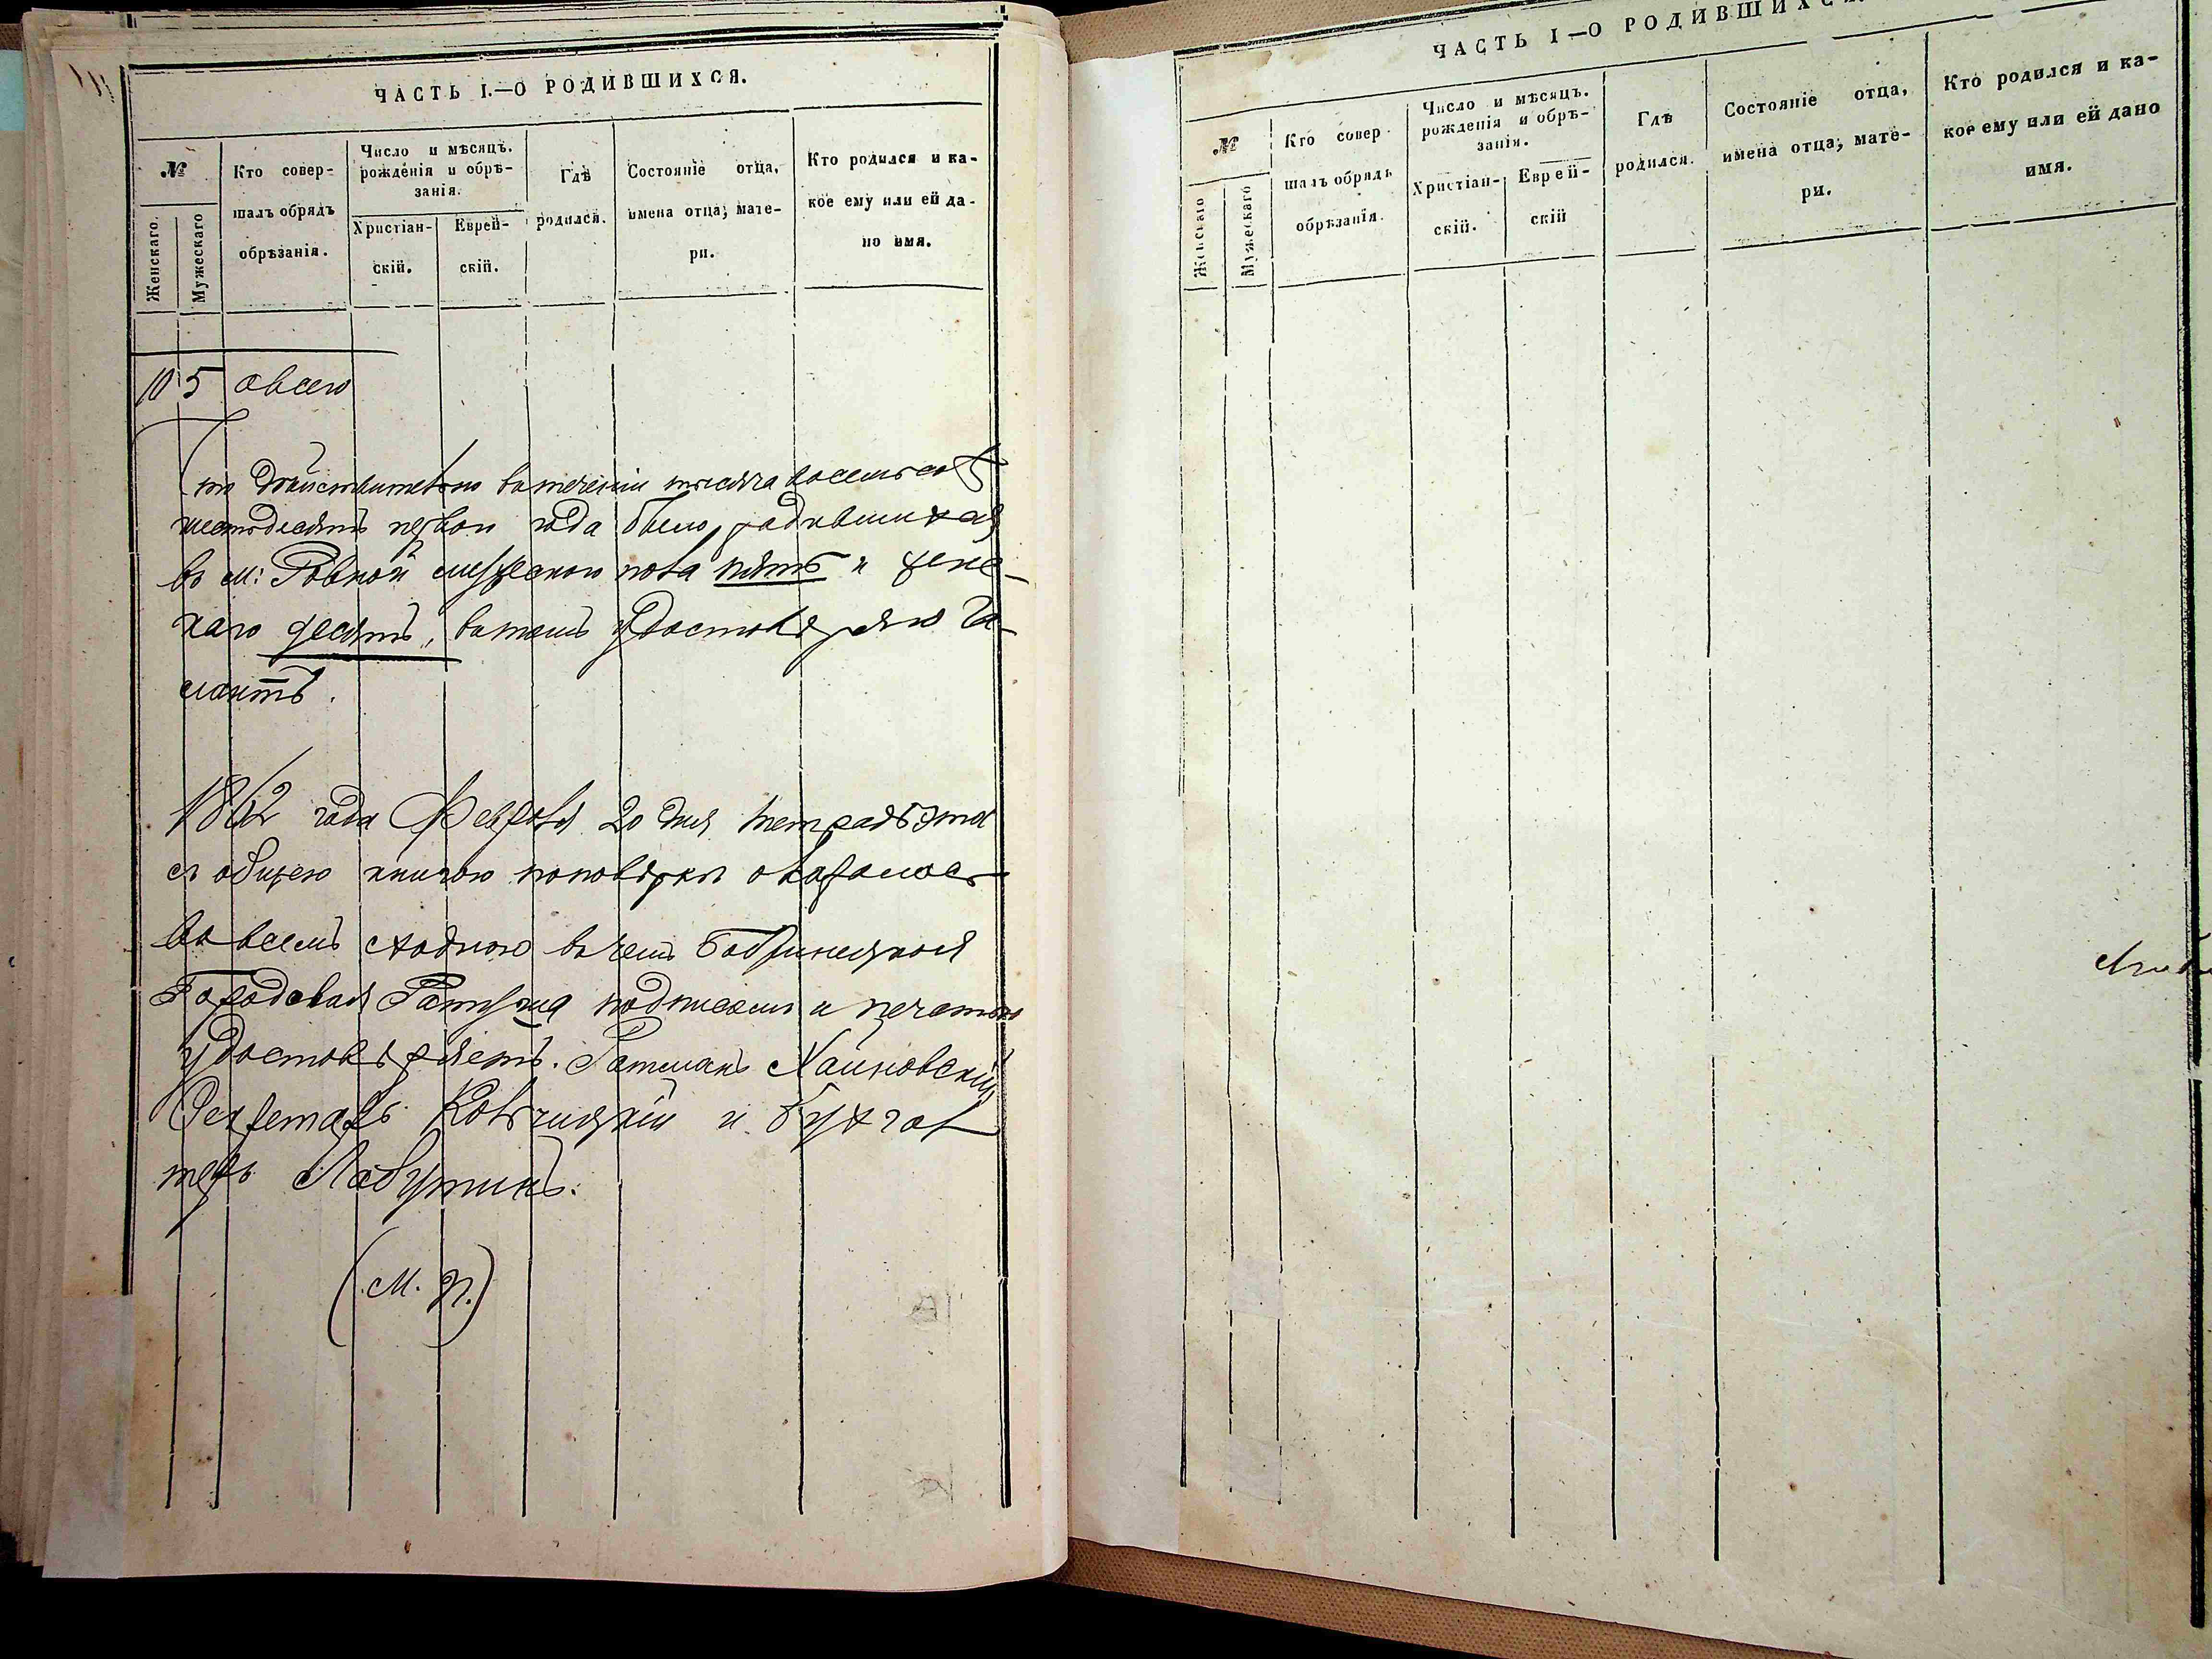 ЧАСТЬ I.—О РОДИВШИХСЯ.
№
Женскаго.
Мужескаго
Кто совер-
шалъ обрядъ
обрѣзанія.
Число и мѣсяцъ.
рожденія и обрѣ-
занія.
Христіан-
скій.
Еврей-
скій.
Гдѣ
родился.
Состояніе отца,
имена отца, мате-
ри.
Кто родился и ка-
кое ему или ей да-
но имя.
10 5 а всего
что дѣйствительно въ теченіи тысяча восемьсотъ
шестьдесятъ первого года было родившихся
въ м: Ровной мужескаго пола пять и женс-
каго десять, въ томъ удостовѣряю
1862 года Февраля 20 дня тетрадь эта
съ общею книгою по повѣркѣ оказалось
во всемъ сходною въ чемъ Бобринецкая
Городовая Ратуша подписомъ и печатью
удостовѣряетъ. Ратманъ Хайновскій
Секретарь и Бухгал
теръ Лабутинъ.
(М. П.)
ЧАСТЬ I—О РОДИВШИХСЯ.
№
Женскаго
Мужескаго
Кто совер-
шалъ обрядъ
обрѣзанія.
Число и мѣсяцъ.
рожденія и обрѣ-
занія.
Христіан-
скій.
Еврей-
скій
Гдѣ
родился.
Состояніе отца,
имена отца, мате-
ри.
Кто родился и ка-
кое ему или ей дано
имя.